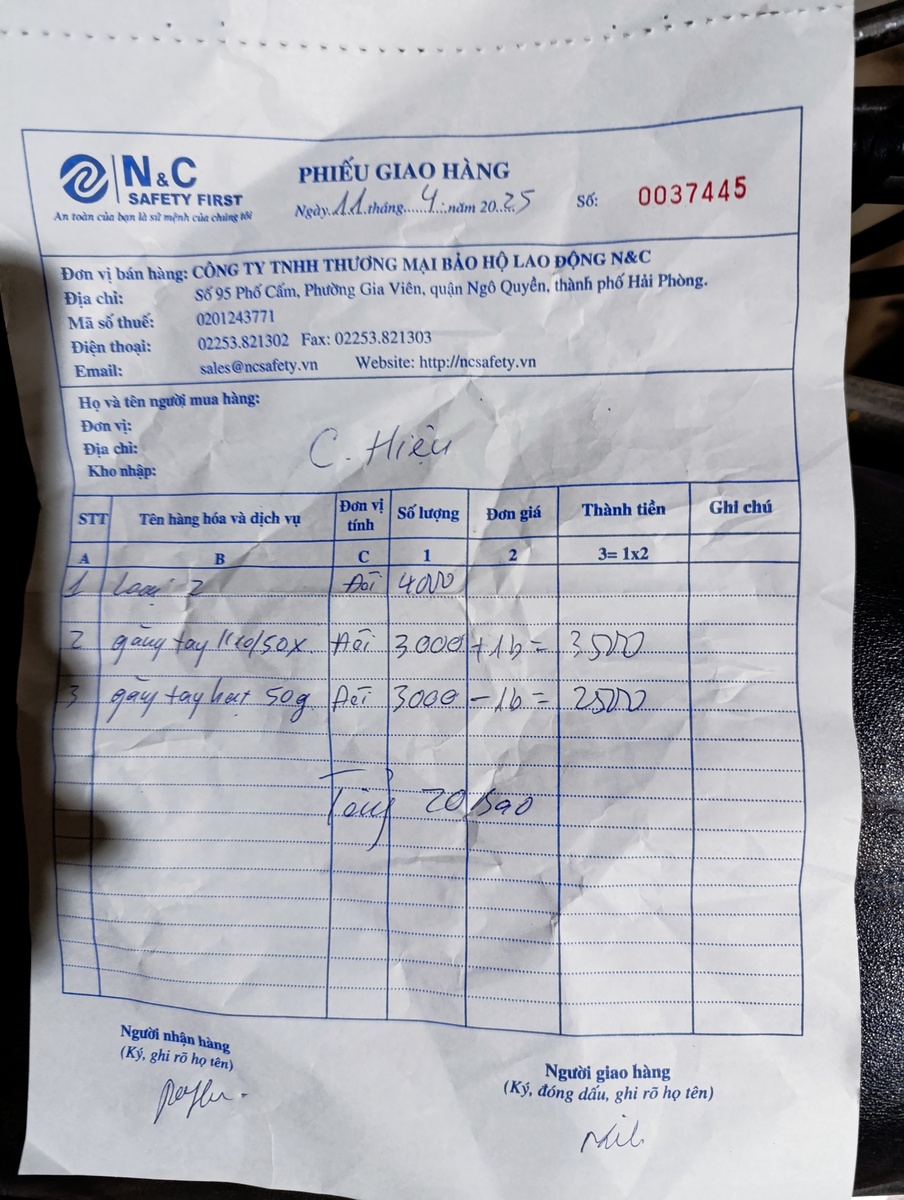 N&C
SAFETY FIRST
An toàn của bạn là sứ mệnh của chúng tôi
PHIẾU GIAO HÀNG
Ngày 11 tháng 4 năm 2025
Số: 0037445
Đơn vị bán hàng: CÔNG TY TNHH THƯƠNG MẠI BẢO HỘ LAO ĐỘNG N&C
Địa chỉ: Số 95 Phố Cấm, Phường Gia Viên, quận Ngô Quyền, thành phố Hải Phòng.
Mã số thuế: 0201243771
Điện thoại: 02253.821302 Fax: 02253.821303
Email: sales@ncsafety.vn Website: http://ncsafety.vn
Họ và tên người mua hàng:
Đơn vị:
Địa chỉ:
C. Hiệu
Kho nhập:
STT Tên hàng hóa và dịch vụ Đơn vị tính Số lượng Đơn giá Thành tiền Ghi chú
A B C 1 2 3= 1x2
1 Loại 2 Đôi 4000
2 găng tay /50x Đôi 3.000 + 1b = 3500
3 găng tay hạt 50g Đôi 3000 - 1b = 2500
Tổng 20 bao
Người nhận hàng
(Ký, ghi rõ họ tên)
Người giao hàng
(Ký, đóng dấu, ghi rõ họ tên)